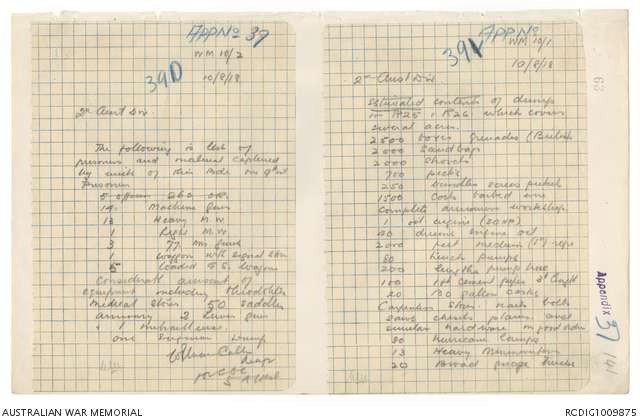 APPNo 37
WM 10/2
39D
10/8/18
2nd Aust Div.
The following is list of
prisoners and material captured
by units of this Bde on 9th inst
Prisoners
5 officers 260 O.R.
14 Machine Guns
13 Heavy M.W
1 Light M.W
3 77 mm guns
1 waggon with signal stores
5 loaded G.S. Waggons
Considerable amount of
equipment including theodolites
medical stores 50 saddles
armoury 2 Lewis guns
1
one
for
APPNo
WM 10/1
39
10/8/18
2nd Aust Div.
Estimated contents of dumps
in R25 & R26 which covers
several acres.
2500 boxes grenades (British
2000 Sandbags
2000 Shovels
700 picks
250 bundles screw pickets
1500 Coils barbed wire
Complete divisional workshop.
1 oil engine (20HP)
40 drums engine oil
2000 feet medium (1") rope
80 Lench pumps
200 lengths pump hose
100
20 20 gallon casks
Carpenters Stores nails bolts
saws chisels planes and
similar hardware in good order
20 Hurricane lamps
13 Heavy
20 Broad gauge trucks
63
Appendix 37
141
AUSTRALIAN WAR MEMORIAL
RCDIG1009875